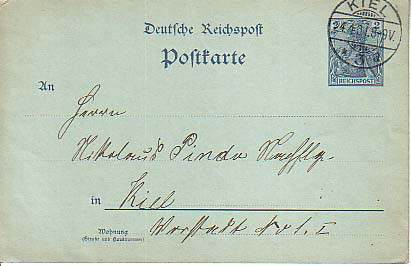 Deutsche Reichspost
Postkarte
KIEL
24.4.01.8-9V.
2
REICHSPOST
* 3 a
An
Herrn
Nikolaus Pindo Nachflg.
in Kiel
Wohnung
(Straße und Hausnummer)
Vorstadt No 1. I